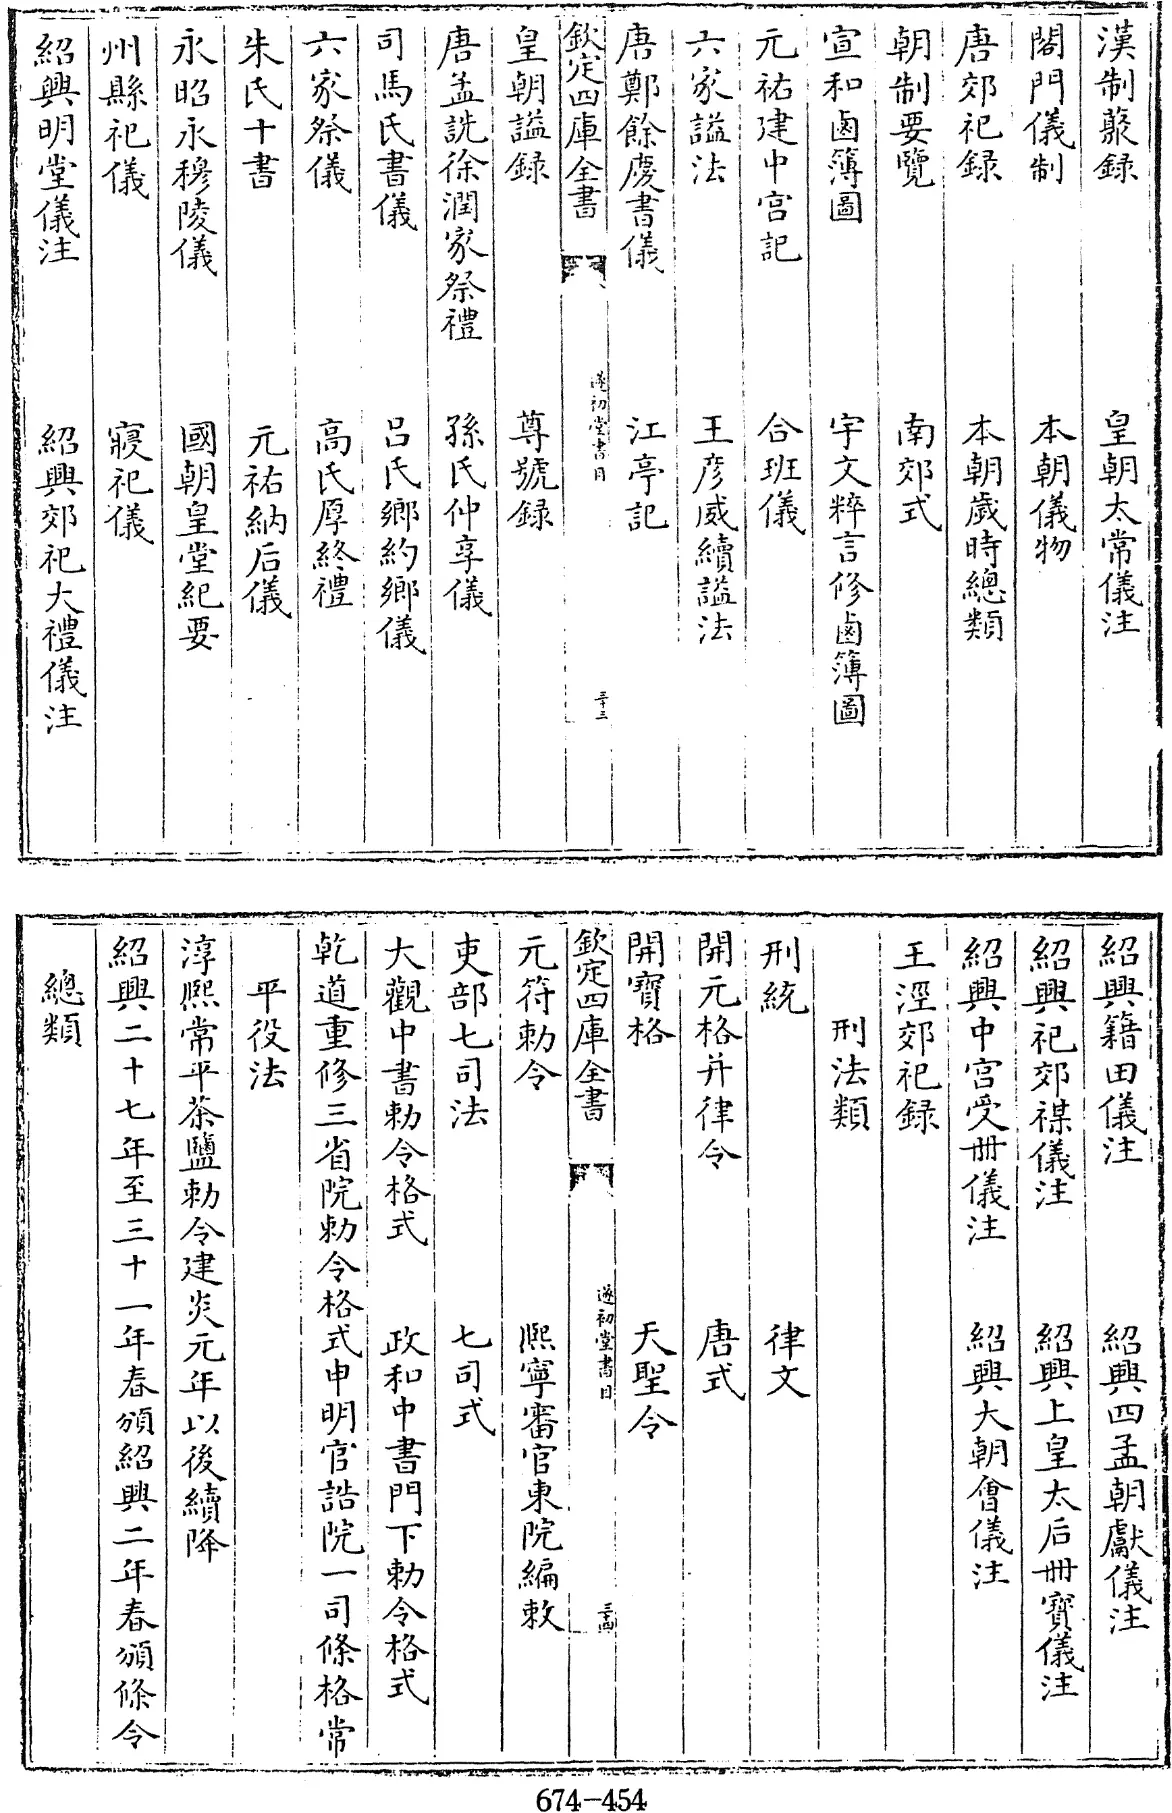 漢制藂録　皇朝太常儀注
閤門儀制　本朝儀物
唐郊祀録　本朝歲時總類
朝制要覽　南郊式
宣和鹵簿圖　宇文粹言修鹵簿圖
元祐建中宫記　合班儀
六家謚法　王彦威續謚法
唐鄭餘慶書儀　江亭記
欽定四庫全書　遂初堂書目　三十三
皇朝謚録　尊號録
唐孟詵徐潤家祭禮　孫氏仲享儀
司馬氏書儀　吕氏鄉約鄉儀
六家祭儀　高氏厚終禮
朱氏十書　元祐納后儀
永昭永穆陵儀　國朝皇堂紀要
州縣祀儀　寢祀儀
紹興明堂儀注　紹興郊祀大禮儀注
紹興籍田儀注　紹興四孟朝獻儀注
紹興祀郊禖儀注　紹興上皇太后冊寳儀注
紹興中宫受冊儀注　紹興大朝會儀注
王涇郊祀録
刑法類
刑統　律文
開元格并律令　唐式
開寳格　天聖令
欽定四庫全書　遂初堂書目　三十四
元符勅令　熙寧審官東院編敕
吏部七司法　七司式
大觀中書勅令格式　政和中書門下勅令格式
乾道重修三省院勅令格式申明官誥院一司條格常
平役法
淳熙常平茶鹽勅令建炎元年以後續降
紹興二十七年至三十一年春頒紹興二年春頒條令
總類
674-454